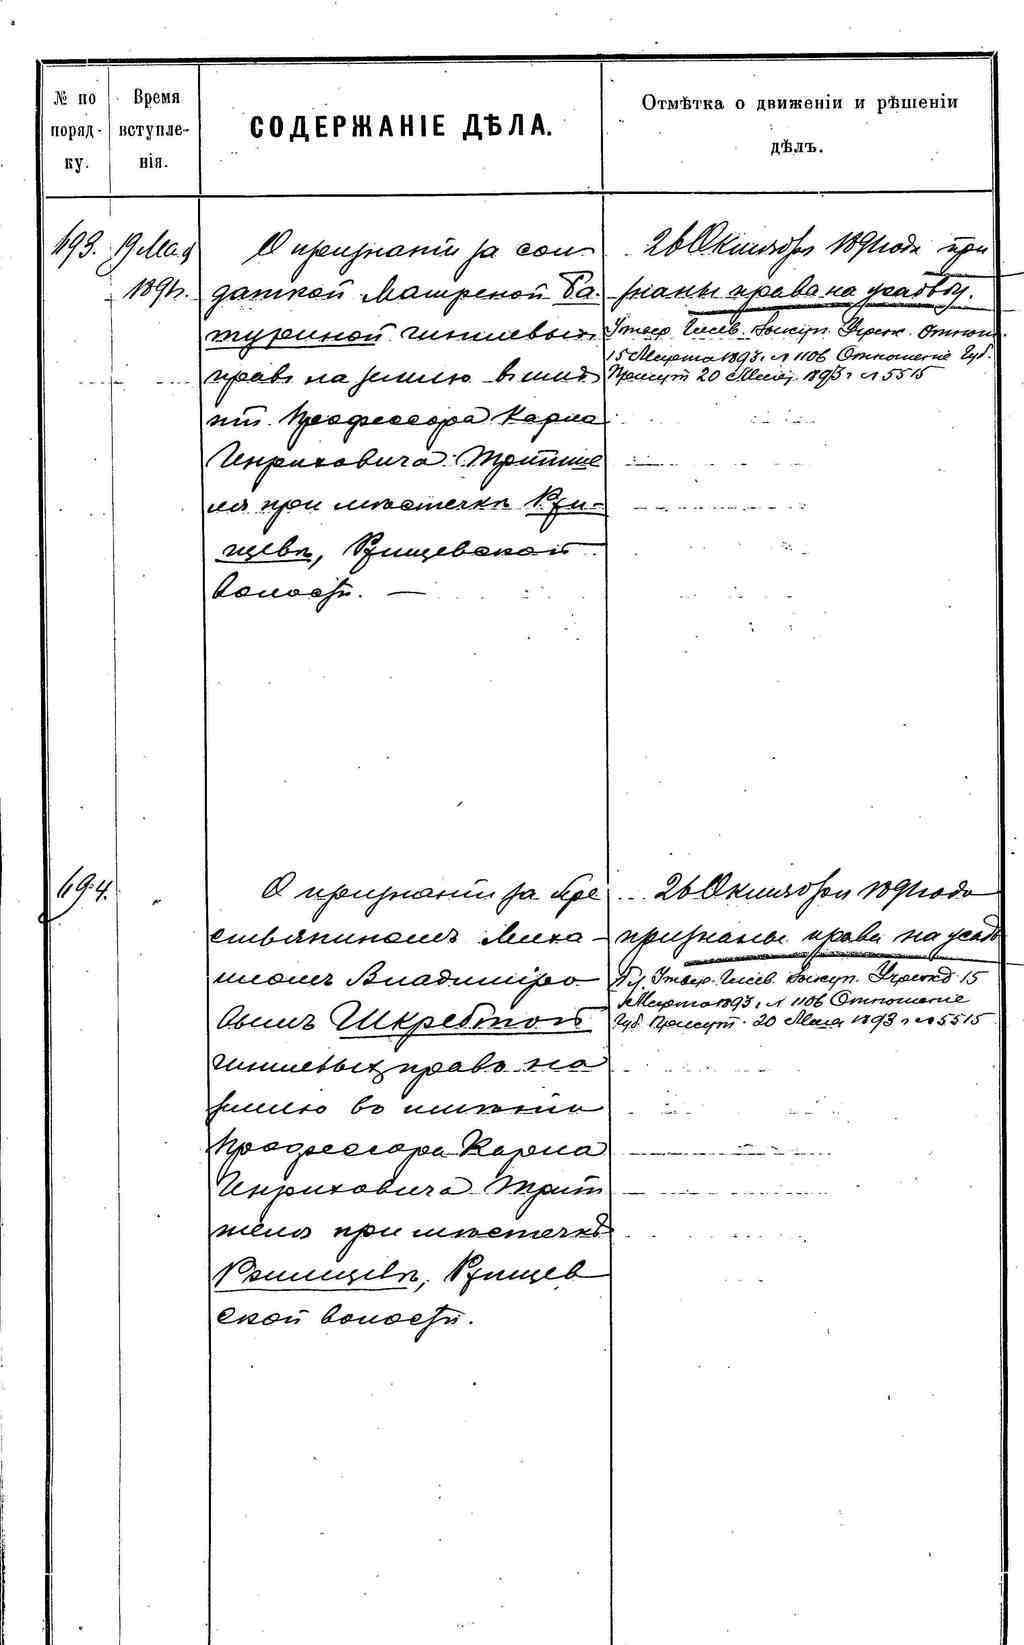 № по порядку.
Время вступленія.
СОДЕРЖАНІЕ ДѢЛА.
Отмѣтка о движеніи и рѣшеніи
дѣлъ.
193. 19 Мая
1891г.
О признаніи за сол-
даткой Матреной Ба-
туриной чиншевыхъ
правъ на землю въ имѣ-
ніи Профессора Карла
Генриховича Тритше
ля при мѣстечкѣ Ржи-
щевѣ, Ржищевской
волости. —
26 Октября 1891 года при
знаны права на усадьбу.
Утвер. Чинев. Выкуп. Учреж. Отнош.
15 Марта 1893 г. № 1106 Отношеніе Губ.
Присут 20 Мая 1893 г № 5515
194. "
О признаніи за кре
стьяниномъ Миха-
иломъ Владиміро
вымъ Шкребтой
чиншевыхъ правъ на
землю во имѣніи
Профессора Карла
Генриховича Трит
шеля при мѣстечкѣ
Ржищевѣ, Ржищев
ской волости.
26 Октября 1891 года
признаны права на усадь
бу. Утвер. Выкуп. Учрежд 15
Марта 1893 г № 1106 Отношеніе
Губ. Присут. 20 Мая 1893 г № 5515